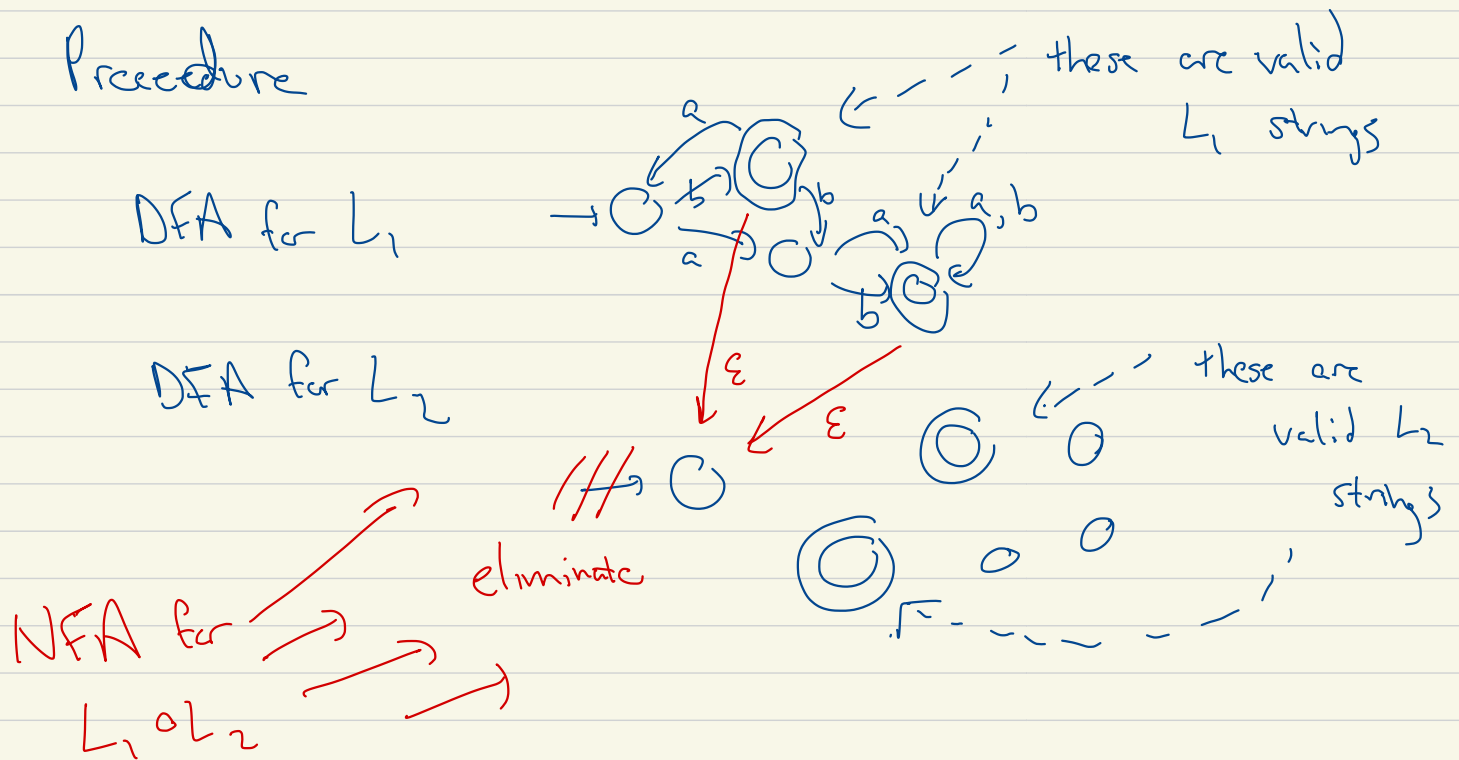 Procedure
these are valid
L₁ strings
a
b
b
a
a, b
a
b
DFA for L₁
ε
ε
DFA for L₂
these are
valid L₂
strings
eliminate
NFA for
L₁ ∘ L₂